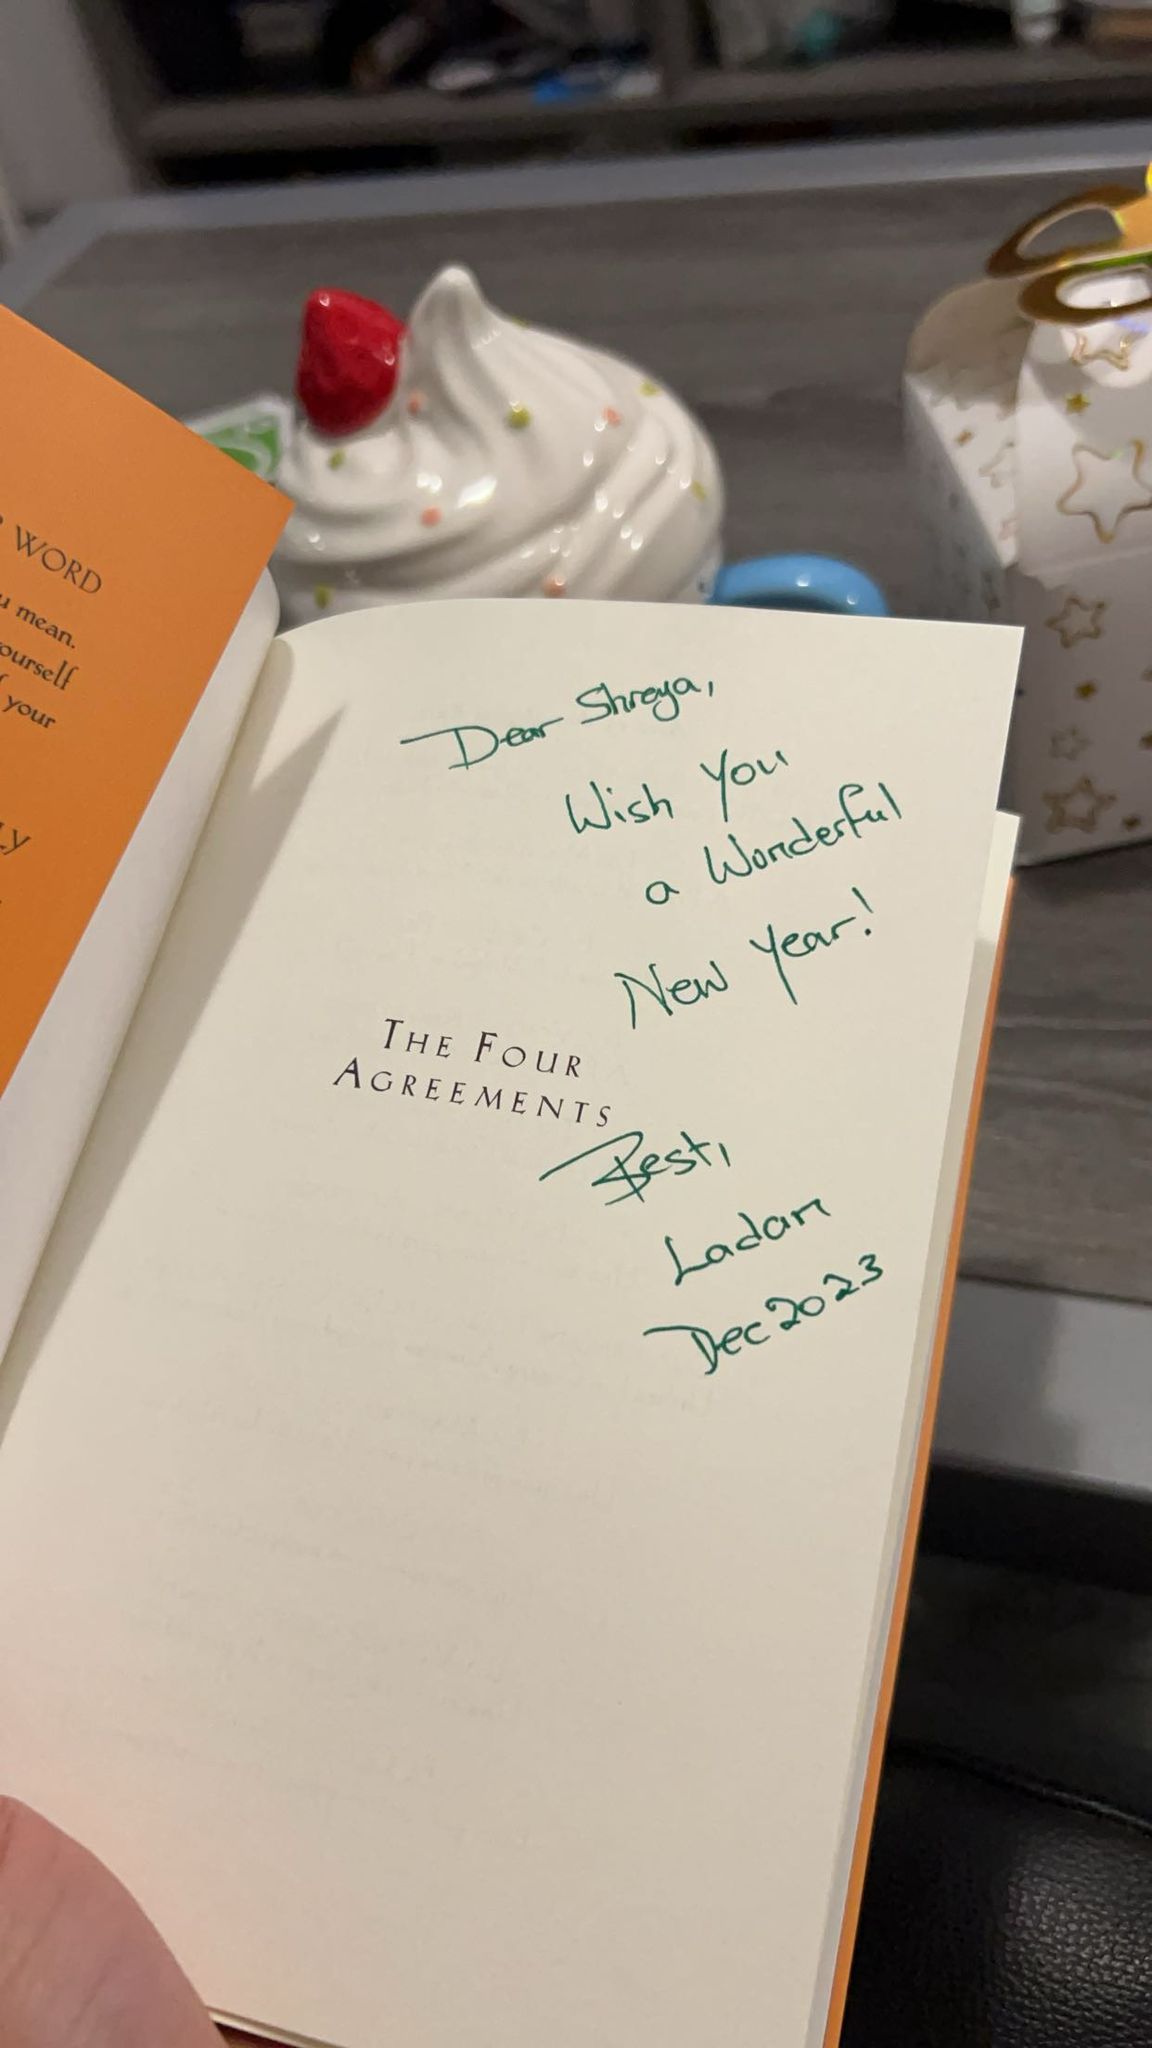 WORD
mean.
ourself
your
LY
Dear Shreya,
Wish You
a Wonderful
New Year!
THE FOUR
AGREEMENTS
Best,
Ladan
Dec 2023